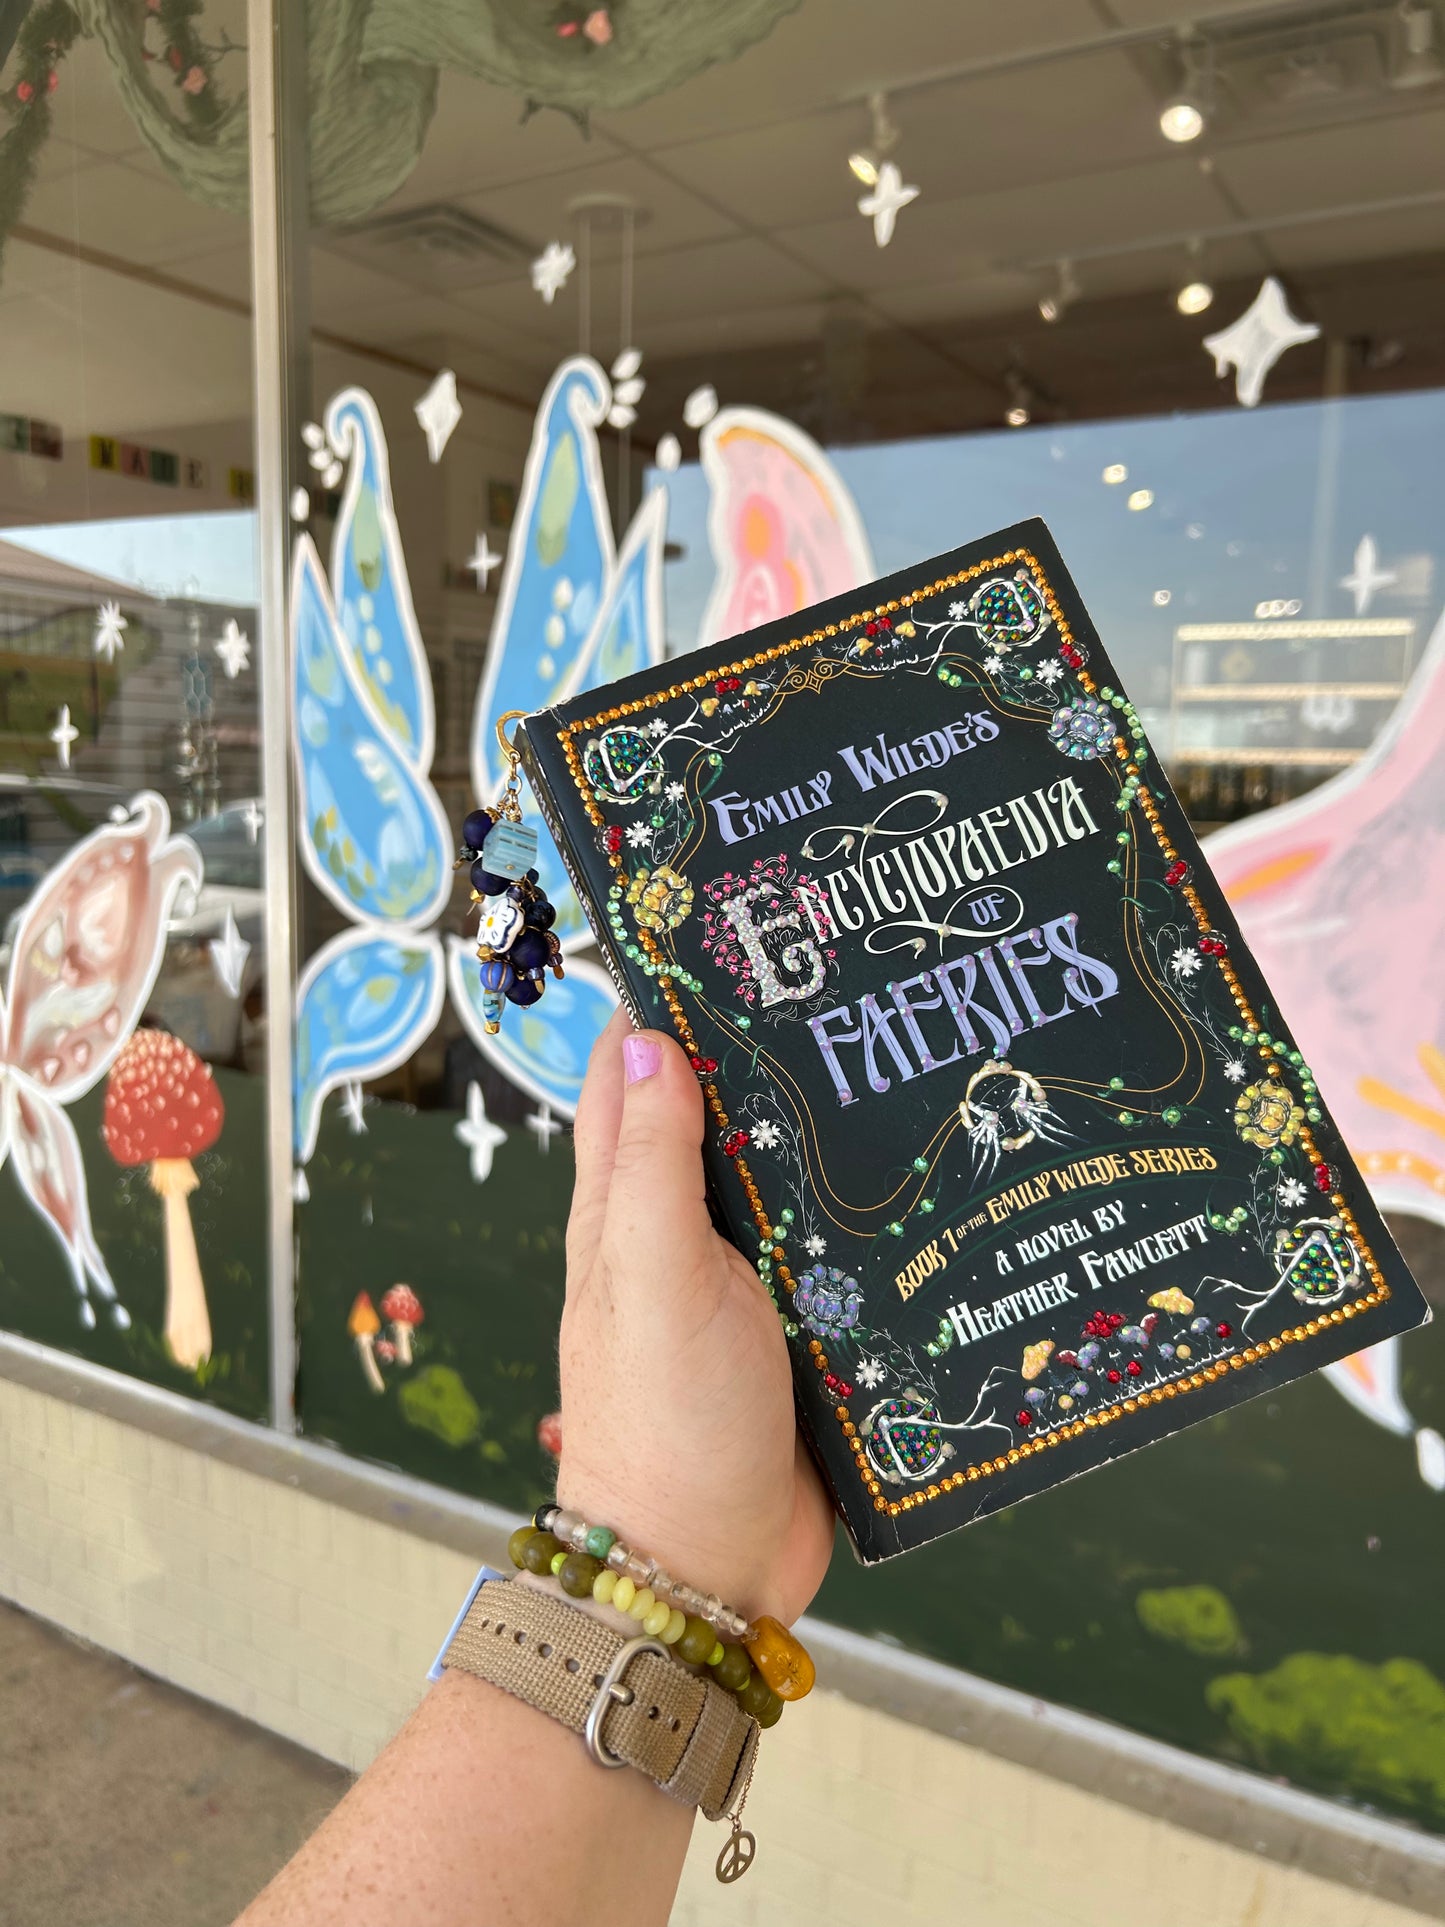 EMILY WILDE'S
ENCYCLOPAEDIA
OF
FAERIES
BOOK 1 OF THE EMILY WILDE SERIES
A NOVEL BY
HEATHER FAWCETT